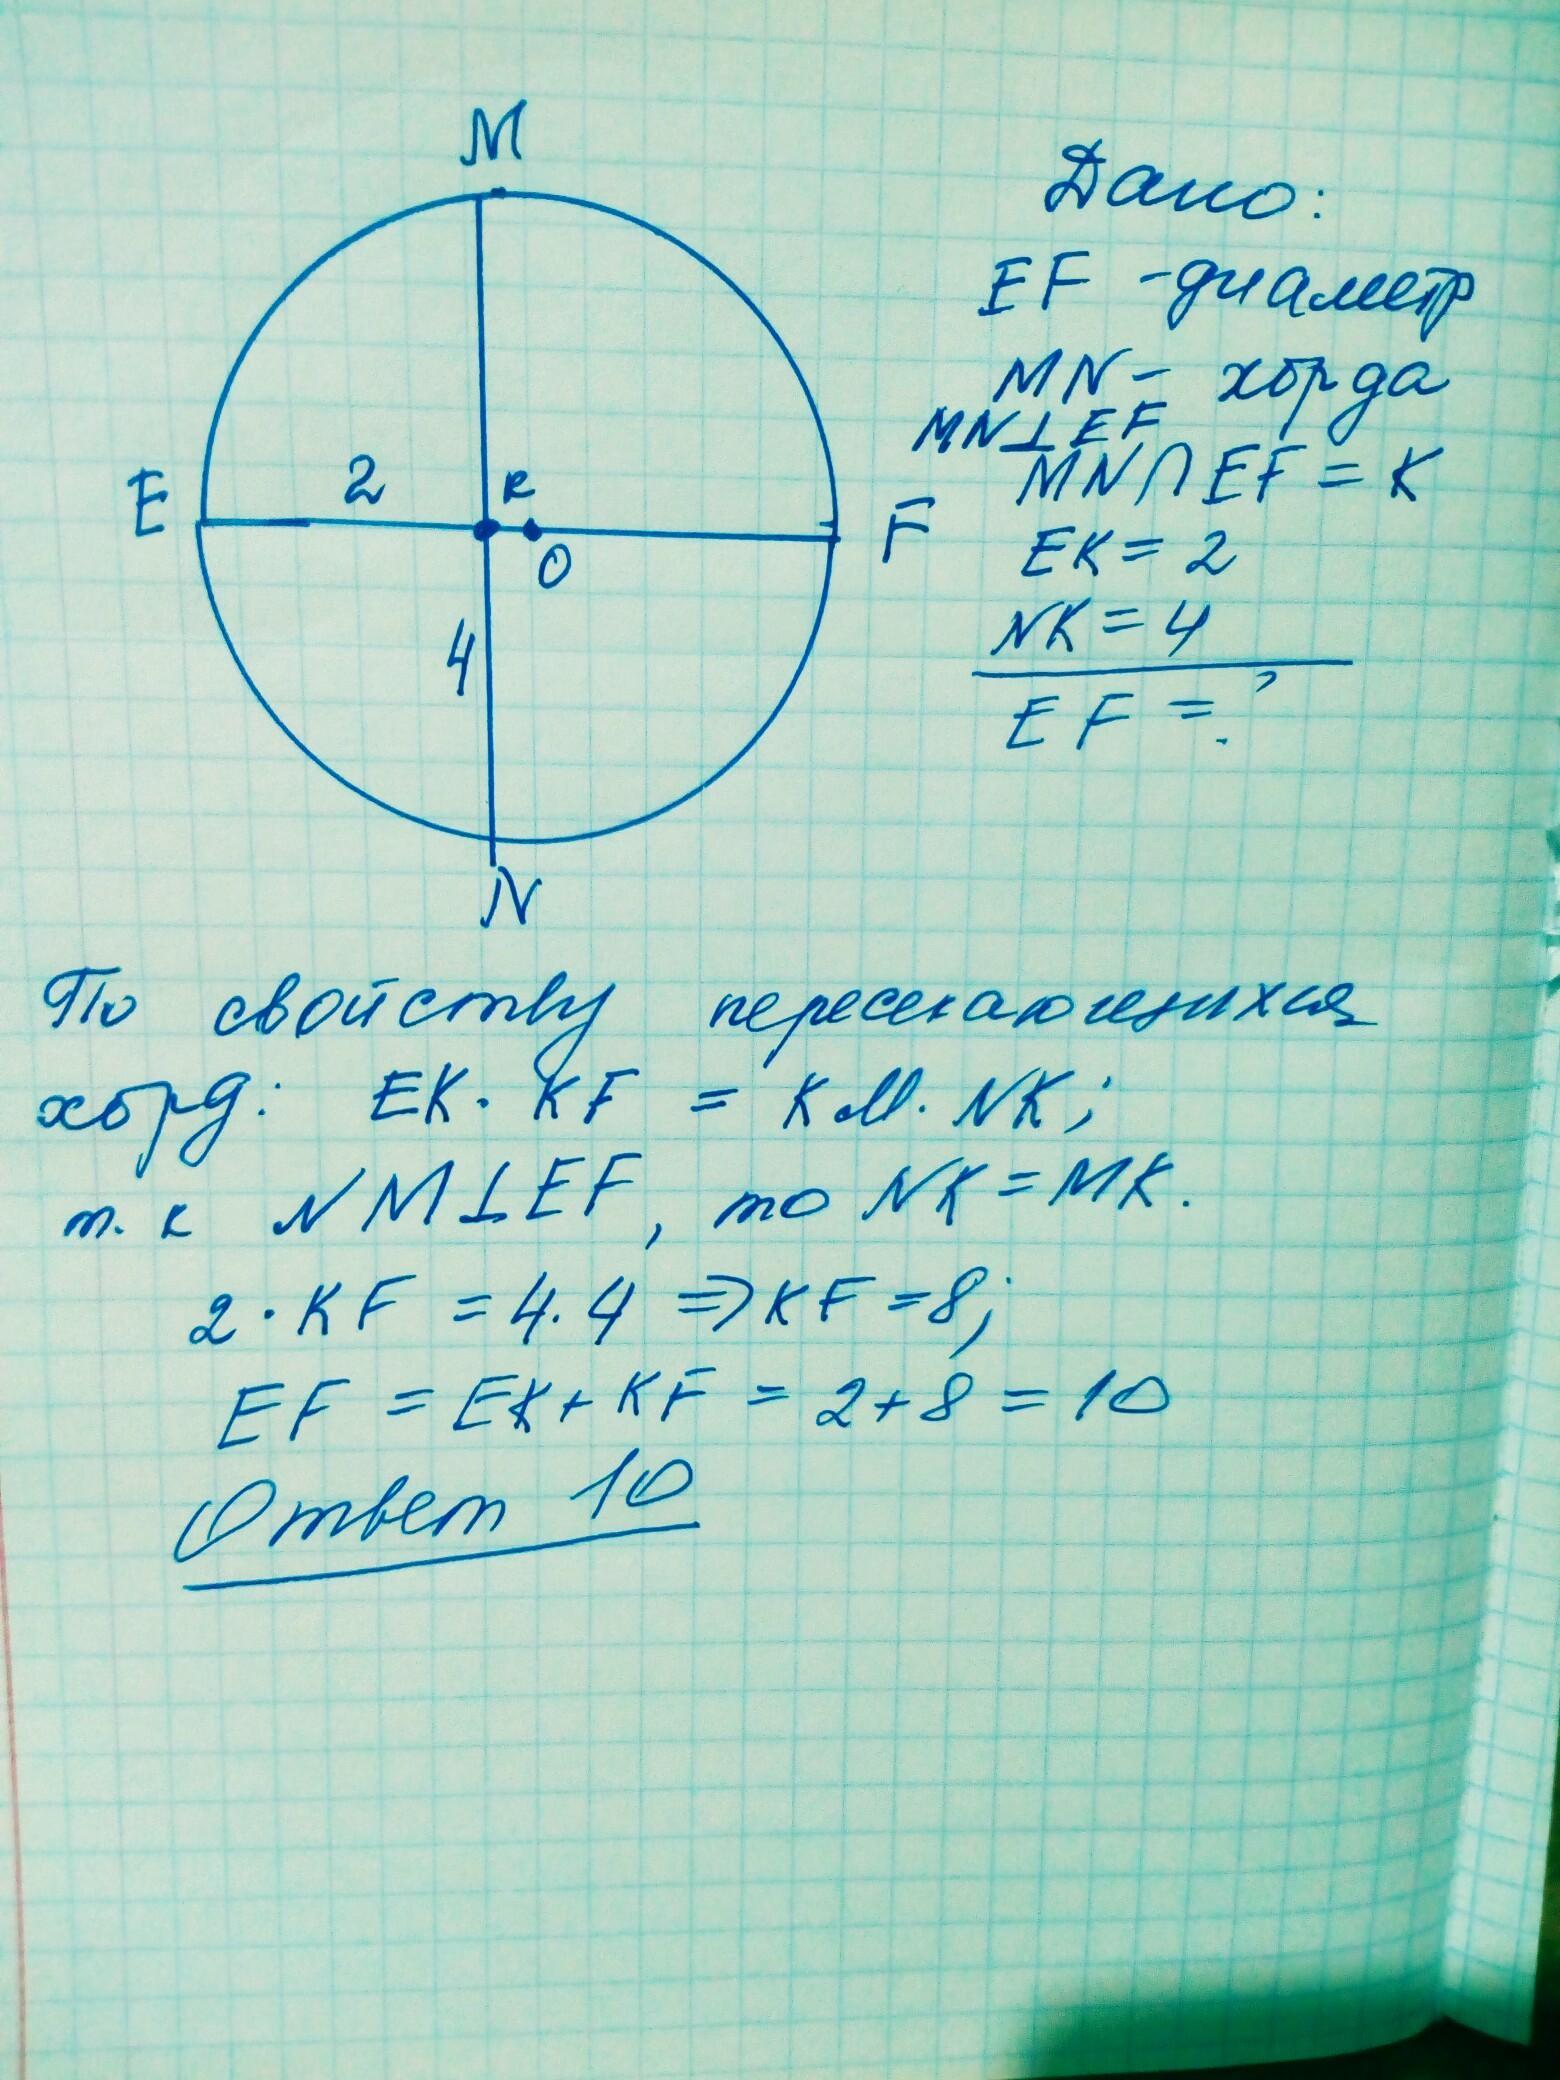 M
Дано:
EF - диаметр
MN - хорда
MN⊥EF
MN∩EF = K
EK = 2
NK = 4
EF = ?
E
2
к
O
F
4
N
По свойству пересекающихся
хорд: EK · KF = KM · NK;
т. к NM⊥EF, то NK = MK.
2 · KF = 4 · 4 => KF = 8;
EF = EK + KF = 2 + 8 = 10
Ответ 10